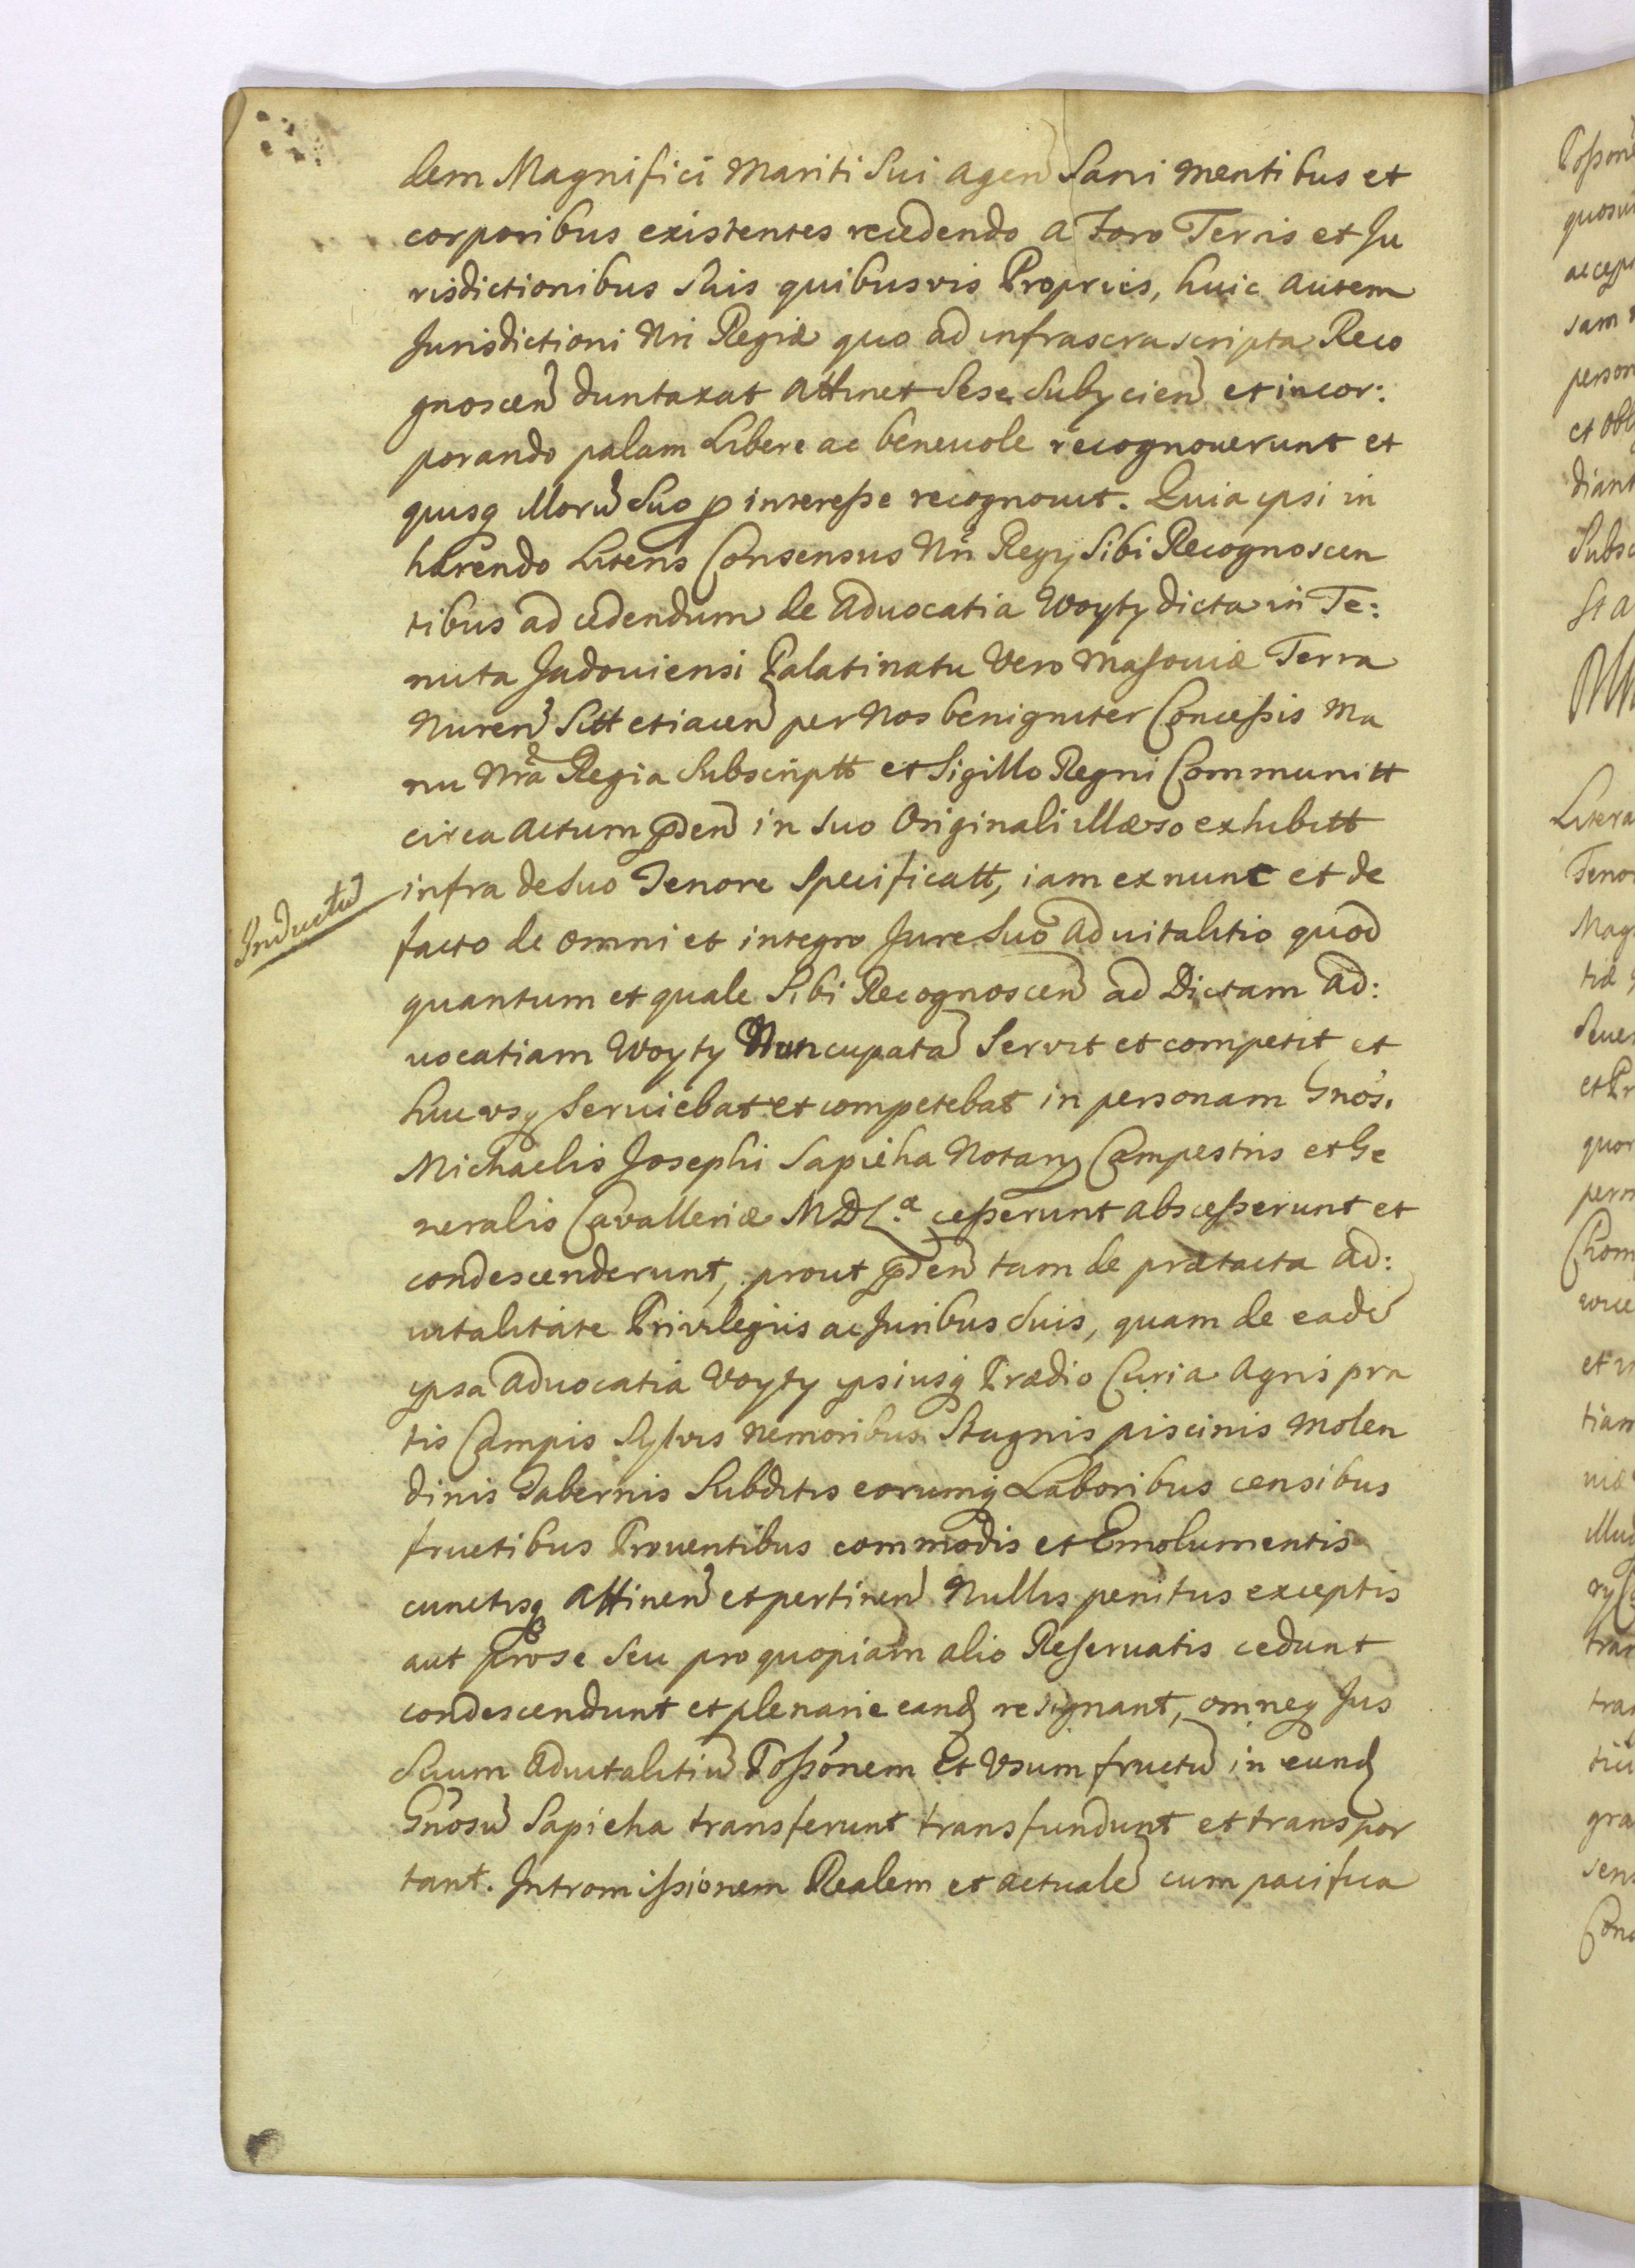 dem Magnifici Mariti Sui agen Sani mentibus et
corporibus existentes recedendo a Foro Terris et Ju
risdictionibus Suis quibusvis Propriis, huic autem
Jurisdictioni Nri Regiæ quo ad infrascra scripta Reco
gnoscen duntaxat attinet Sese Subycien et incor:
porando palam Libere ac beneuole recognouerunt et
quisq illorũ Suo p interesse recognouit. Quia ipsi in
hærendo Literis Consensus Nri Regy Sibi Recognoscen
tibus ad cedendum de Aduocatia Woyty dicta in Te:
nuta Jadouiensi Palatinatu Vero Masouiæ Terra
Nuren Sitt et iacen per Nos benigniter Concessis Ma
nu Nrã Regia Subscriptt et Sigillo Regni Communitt
circa actum pden in Suo Originali illæso exhibitt
Inductũ
infra de Suo Tenore Specificatt, iam ex nunc et de
facto de omni et integro Jure Suo aduitalitio quod
quantum et quale Sibi Recognoscen ad Dictam Ad:
uocatiam Woyty Nuncupatã Servit et competit et
huc usq Seruiebat et competebat in personam Gnosi
Michaelis Josephi Sapieha Notary Campestris et Ge
neralis Cavalleriæ M D L.æ cesserunt abscesserunt et
condescenderunt, prout pden tam de prætacta ad:
uitalitate Privilegiis ac Juribus Suis, quam de eadẽ
ipsa aduocatia Woyty ipsiusq Prædio Curia Agris pra
tis Campis Sylvis Nemoribus Stagnis piscinis Molen
dinis Tabernis Subditis eorumq Laboribus censibus
fructibus Prouentibus commodis et Emolumentis
cunctisq attinen et pertinen Nullis penitus exceptis
aut pro se seu pro quopiam alio Reseruatis cedunt
condescendunt et plenarie eand resignant, omneq Jus
Suum aduitalitiũ Possonem et Vsum fructũ in eund
Gnosũ Sapieha transferunt transfundunt et transpor
tant. Intromissionem Realem et actualẽ cum pacifica